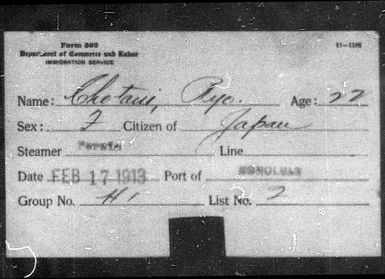 Form 502
11—1192
Department of Commerce and Labor
IMMIGRATION SERVICE
Name: Chotani, Ryo. Age: 22
Sex: F Citizen of Japan
Steamer Persia Line
Date FEB 17 1913 Port of HONOLULU
Group No. H1 List No. 2